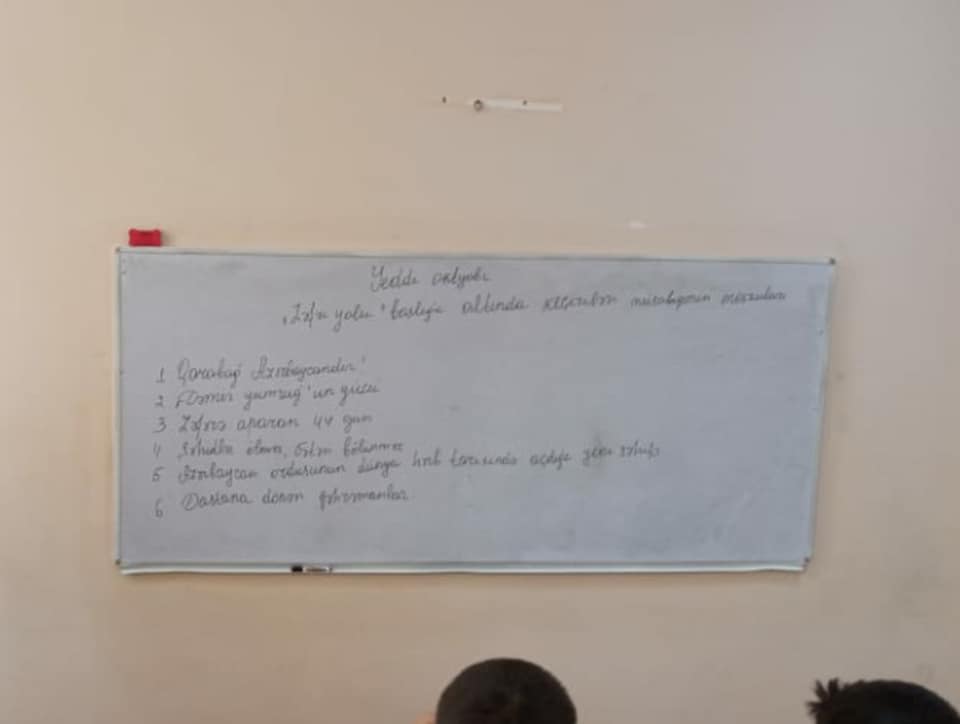 Yeddi oktyabr
"Zəfər yolu" başlığı altında keçirilən müsabiqənin mövzuları
1 Qarabağ Azərbaycandır!
2 "Dəmir yumruğ"un gücü
3 Zəfərə aparan 44 gün
4 Şəhidlər ölməz, Vətən bölünməz
5 Azərbaycan ordusunun dünya hərb tarixində açdığı yeni səhifə
6 Dastana dönən qəhrəmanlar